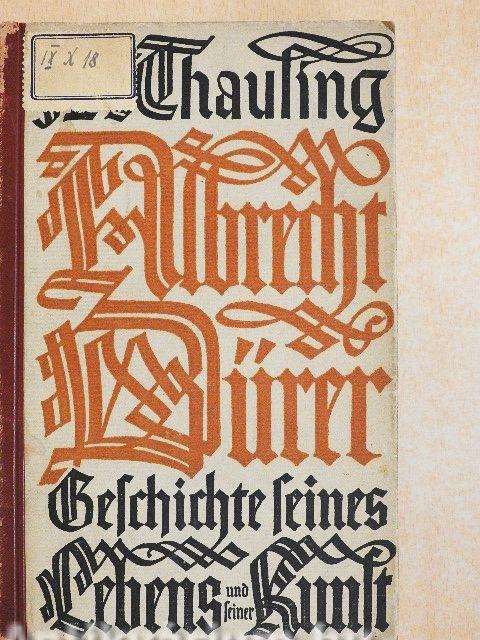 IX X 18
Thausing
Albrecht
Dürer
Geschichte seines
Lebens und seiner Kunst